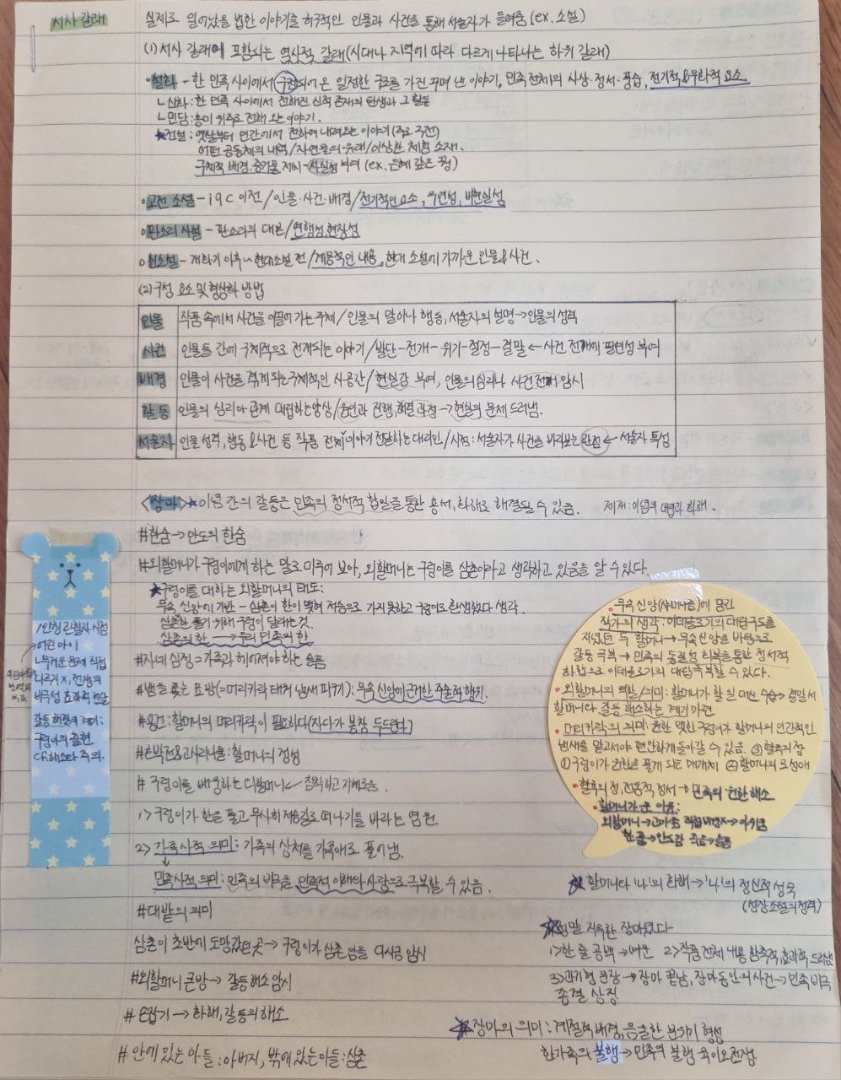 서사 갈래
실제로 일어났을 법한 이야기를 허구적인 인물과 사건을 통해 서술자가 들려줌 (ex. 소설)
(1) 서사 갈래에 포함되는 역사적 갈래(시대나 지역에 따라 다르게 나타나는 하위 갈래)
설화 - 한 민족 사이에서 구전되어 온 일정한 구조를 가진 꾸며 낸 이야기, 민족 전체의 사상·정서·풍습, 전기적&우화적 요소
ㄴ신화: 한 민족 사이에서 전해진 신적 존재의 탄생과 그 활동
ㄴ민담: 흥미 위주로 전해 오는 이야기.
★전설: 옛날부터 민간에서 전하여 내려오는 이야기 (주로 구전)
어떤 공동체의 내력/자연물의 유래/이상한 체험 소재.
구체적 배경, 증거물 제시→사실성 부여 (ex. 은혜 갚은 꿩)
고전 소설 - 19C 이전/인물·사건·배경/전기적인 요소, 우연성, 비현실성
판소리 사설 - 판소리의 대본/연행성, 현장성
신소설 - 개화기 이후~현대소설 전/계몽적인 내용, 현대 소설에 가까운 인물&사건.
(2) 구성 요소 및 형상화 방법
인물 작품 속에서 사건을 이끌어 가는 주체/인물의 말이나 행동, 서술자의 설명→인물의 성격
사건 인물들 간에 구체적으로 전개되는 이야기/발단-전개-위기-절정-결말 ← 사건 전개에 필연성 부여
배경 인물이 사건을 겪게 되는 구체적인 시공간/현실감 부여, 인물의 심리나 사건 전개 암시
갈등 인물의 심리나 관계 대립하는 양상/원인과 진행, 해결 과정→현실의 문제 드러냄.
서술자 인물 성격, 행동&사건 등 작품 전체 이야기 전달하는 대리인/시점: 서술자가 사건을 바라보는 관점 ← 서술자 특성
<장마> ★이념 간의 갈등은 민족의 정서적 합일을 통한 용서, 화해로 해결될 수 있음. 제재: 이념의 대립과 화해.
#한숨→안도의 한숨
#외할머니가 구렁이에게 하는 말로 미루어 보아, 외할머니는 구렁이를 삼촌이라고 생각하고 있음을 알 수 있다.
★구렁이를 대하는 외할머니의 태도:
무속 신앙에 기반 - 삼촌이 한이 맺혀 저승으로 가지 못하고 구렁이로 환생했다 생각.
삼촌한 풀기 위해 구렁이 달래는 것.
삼촌의 한 → 우리 민족의 한
#자네 심정: 가족과 헤어져야 하는 슬픔
#뱀을 쫓는 방법(=머리카락 태워 냄새 피우기): 무속 신앙에 근거한 주술적 행위.
#용건: 할머니의 머리카락이 필요하다
#은박전&고사리나물: 할머니의 정성
# 구렁이를 배웅하는 외할머니 ← 침착하고
1> 구렁이가 한을 풀고 무사히 저승길로 떠나기를 바라는 염원
2> 가족사적 의미: 가족의 상처를 가족애로 풀어냄.
민족사적 의미: 민족의 비극을 민족적 이해와 사랑으로 극복할 수 있음.
#대밭의 의미
삼촌이 초반에 도망갔던 곳→구렁이가 삼촌 밤을 암시
#외할머니 큰방→갈등 해소 암시
# 손잡기→화해, 갈등의 해소
# 안에 있는 아들: 아버지, 밖에 있는 아들: 삼촌
1인칭 관찰자 시점
어린 아이
ㄴ무거운 문제 직접
다루지 X, 전쟁의
비극성 효과적 전달
갈등 해결의 계기:
구렁이의 출현
cf. 해소와 주의.
• 무속 신앙(샤머니즘)에 담긴
작가의 생각: 이데올로기의 대립 구도를
지녔던 두 할머니→무속신앙을 바탕으로
갈등 극복→민족의 동질성 회복을 통한 정서적
화합으로 이데올로기의 대립 극복할 수 있다.
• 외할머니의 역할/의미: 할머니가 할 일 대신 수습→결말서
할머니와 갈등 해소하는 계기 마련
• 머리카락의 의미: 원한 맺힌 구렁이가 할머니의 인간적인
냄새를 맡고서야 편안하게 돌아갈 수 있음. ③ 혈육의 정
① 구렁이가 원한을 풀게 되는 매개체 ② 할머니의 모성애
• 혈육의 정, 전통적 정서→민족의 원한 해소
• 할머니가 운 이유:
외할머니→고마움 직접 배웅X→아쉬움
한 풂→안도감 죽음→슬픔
★할머니와 '나'의 화해→'나'의 정신적 성숙
(성장 소설의 성격)
★정말 지루한 장마였다
1> 한 줄 공백→여운 2> 작품 전체 내용 함축적, 효과적 드러냄
3> 과거형 문장→장마 끝남, 장마 동안의 사건→민족 비극
종결 상징
★장마의 의미: 계절적 배경, 음울한 분위기 형성
한 가족의 불행→민족의 불행 육이오 전쟁